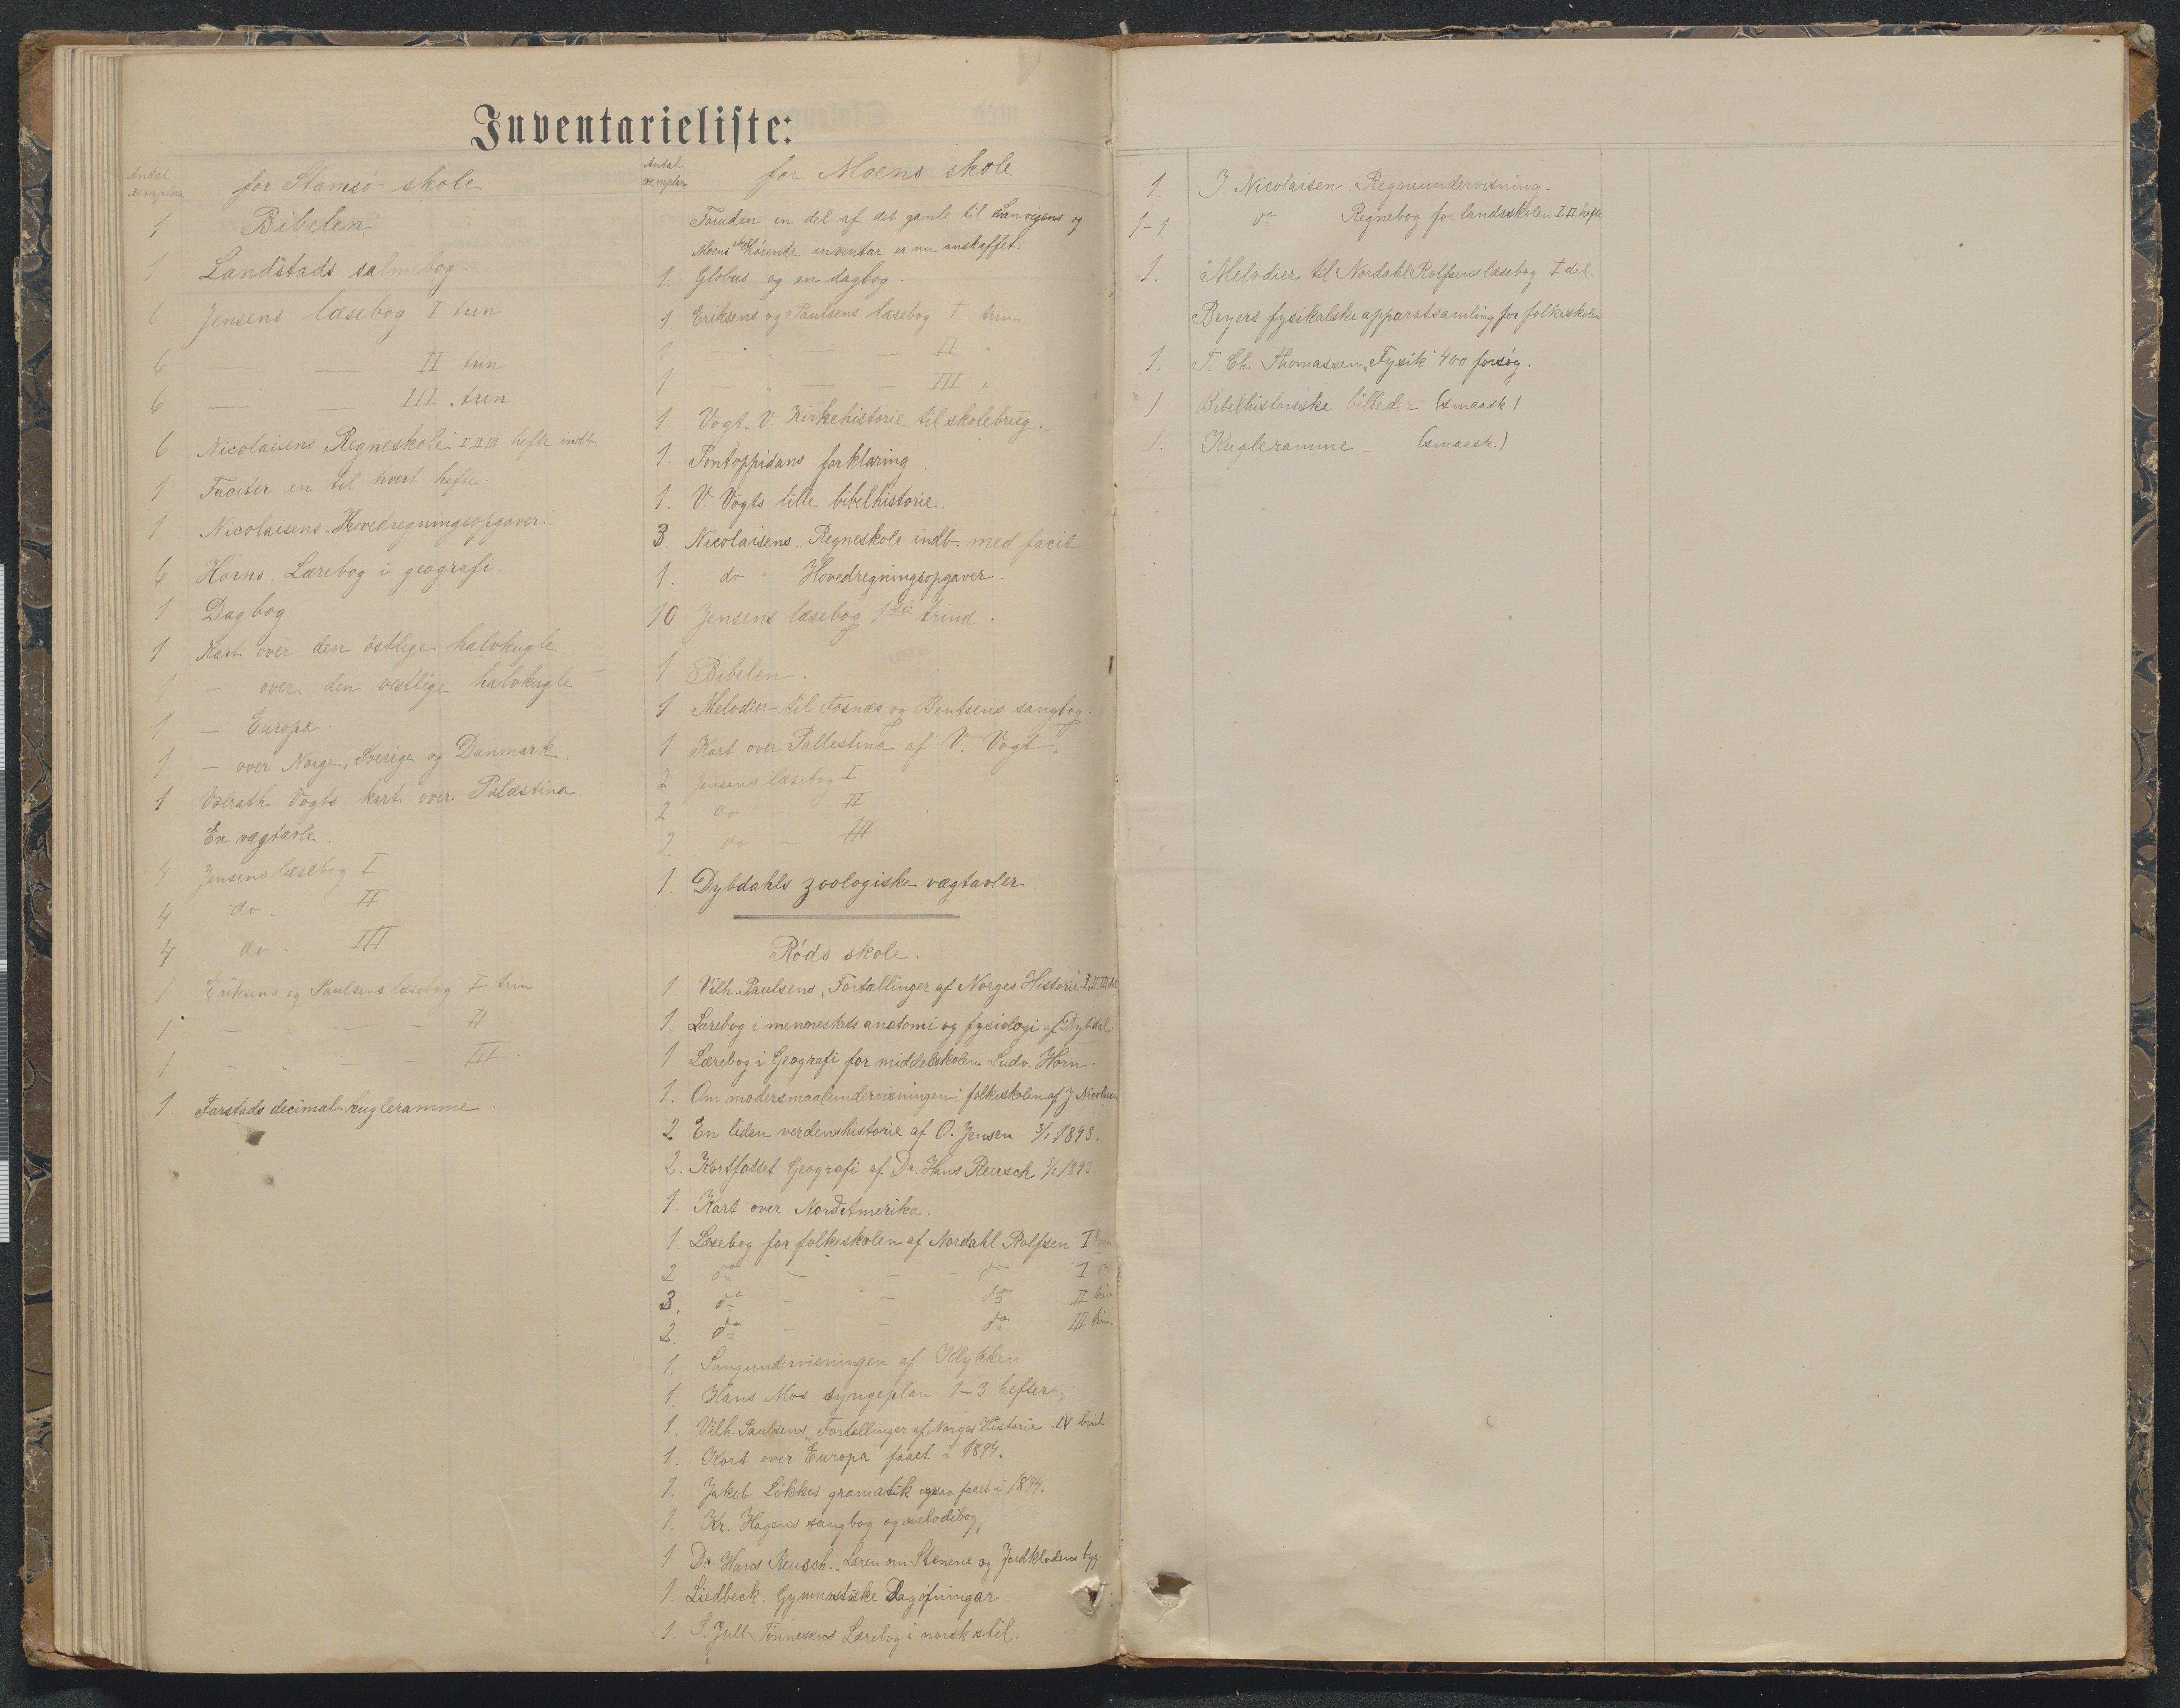 Inventarieliste:
Antal
exemplar
for Stamsø skole
1 Bibelen
1 Landstads salmebog.
6 Jensens læsebog I trin
6 — — II trin
6 — — III. trin
6 Nicolaisens Regneskole I, II, III hefte indb.
1 Faciter en til hvert hefte.
1 Nicolaisens Hovedregningsopgaver.
6 Horns Lærebog i geografi.
1 Dagbog
1 Kart over den østlige halvkugle
1 — over den vestlige halvkugle
1 — Europa.
1 — over Norge, Sverige og Danmark.
1 Volrath Vogts kart over Palæstina
En vægtavle.
4 Jensens læsebog I
4 do - II
4 do - III
1 Eriksens og Paulsens læsebog I trin
1 — — — II
1 — — — III.
1. Farstads decimal-kugleramme.
Antal
exemplar
for Moens skole
Foruden en del af det gamle til og
Moens skole hørende inventar er nu anskaffet:
1. Globus og en dagbog.
1 Eriksens og Paulsens læsebog I trin
1. " — — II "
1 — " — — III "
1 Vogt V. Kirkehistorie til skolebrug.
1. Pontoppidans forklaring.
1. V. Vogts lille bibelhistorie.
3. Nicolaisens „Regneskole indb. med facit
1. do " Hovedregningsopgaver.
10 Jensens læsebog 1ste trind.
1 Bibelen.
1 Melodier til Fosnæs og Bentsens sangbog.
1 Kart over Pallestina af V. Vogt.
2 Jensens læsebog I
2 do II
2 do — III
1. Dybdahls zoologiske vægtavler
Røds skole.
1. Vilh. Paulsens, Fortællinger af Norges Historie I, II, III
1. Lærebog i menneskets anatomi og fysiologi af Dybdal.
1. Lærebog i Geografi for middelskolen Ludv. Horn.
1. Om modersmaalundervisningen i folkeskolen af J. Nicolaisen
2 En liden verdenshistorie af O. Jensen 3/1 1893.
2. Kortfattet Geografi af Dr. Hans Reusch 3/1 1893
1. Kart over NordAmerika.
1. Læsebog for folkeskolen af Nordahl Rolfsen I
2 do — — — do I
3. do — — do II trin
2. do — — do III trin.
1. Sangundervisningen af Klykken
1. Hans Mos syngeplan 1–3 hefter
1. Vilh. Paulsens „Fortællinger af Norges Historie IV bind
1. Kart over Europa faaet i 1894.
1. Jakob Løkkes gramatik ogsaa faaet i 1894.
1. Kr. Hagens sangbog og melodibog,
1 Dr. Hans Reusch. Læren om Stenene og Jordklodens byg
1. Liedbeck. Gymnastiske Dagöfningar.
1. S. Jull Tönnesens Lærebog i norsk stil.
1. J. Nicolaisen Regneundervisning.
1-1 do Regnebog for landsskolen I. II. hefte
1. Melodier til Nordahl Rolfsens læsebog I del
Beyers fysikalske apparatsamling for folkeskolen
1. T. Ch. Thomassen „Fysik" 400 forsøg.
1 Bibelhistoriske billeder (smaask)
1. Kugleramme — (smaask.)